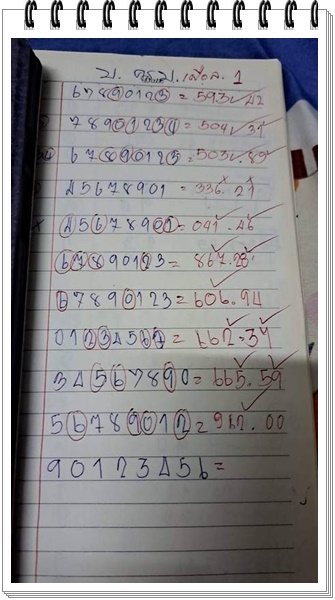 67890123 = 593.42
78901234 = 504.34
67890123 = 503.89
45678901 = 336.21
45678901 = 041.46
67890123 = 867.28
67890123 = 606.94
01234567 = 662.34
34567890 = 665.59
56789012 = 962.00
90123456 =